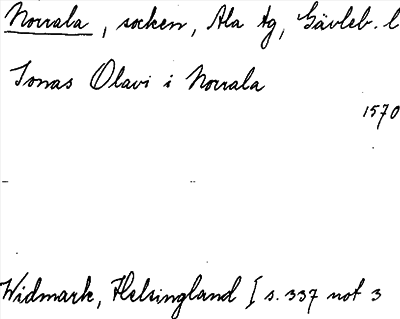 Norrala, socken, Ala tg, Gävleb. l
Jonas Olavi i Norrala
1570
Widmark, Helsingland I s. 337 not 3